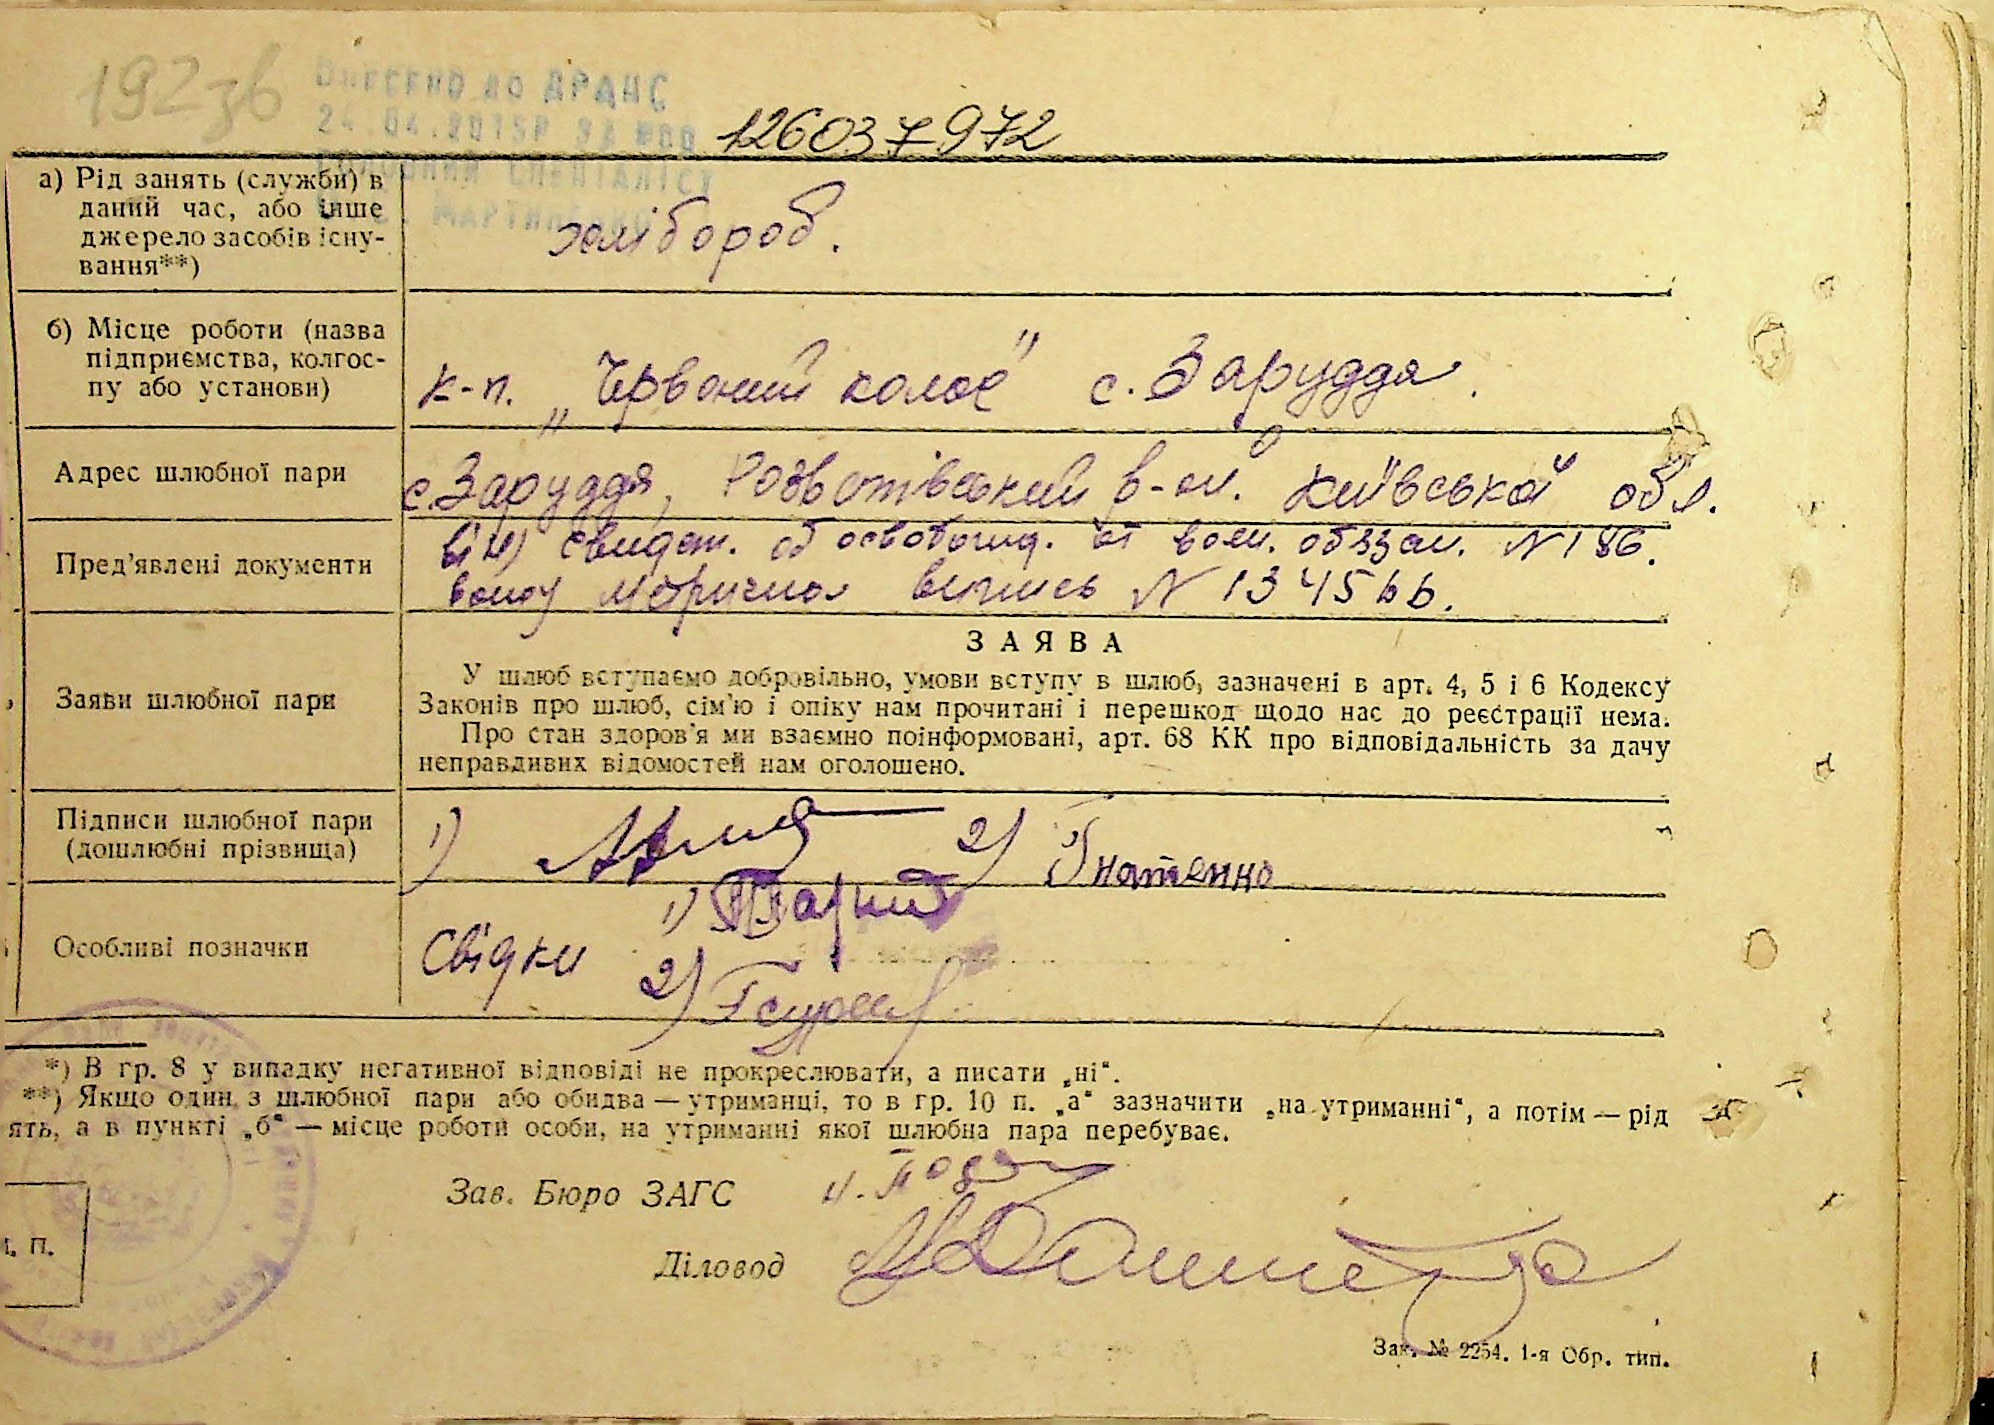 192зв
ВНЕСЕНО ДО ДРАЦС
24.04.2015Р ЗА №00 126037972
ГОЛОВНИЙ СПЕЦІАЛІСТ
МАРТИНЕНКО
а) Рід занять (служби) в
даний час, або інше
джерело засобів існу-
вання**)
хлібороб.
б) Місце роботи (назва
підприємства, колгос-
пу або установи)
к-п. „Червоний колос" с. Заруддя.
Адрес шлюбної пари
с. Заруддя, Розватівський р-он. Київської обл.
Пред'явлені документи
він) свидет. об освобожд. от воен. обязан. N 186.
вона) Метрична випись N 1345
Заяви шлюбної пари
ЗАЯВА
У шлюб вступаємо добровільно, умови вступу в шлюб, зазначені в арт. 4, 5 і 6 Кодексу
Законів про шлюб, сім'ю і опіку нам прочитані і перешкод щодо нас до реєстрації нема.
Про стан здоров'я ми взаємно поінформовані, арт. 68 КК про відповідальність за дачу
неправдивих відомостей нам оголошено.
Підписи шлюбної пари
(дошлюбні прізвища)
1) 2) Гнатенко
Особливі позначки
Свідки 1)
2)
*) В гр. 8 у випадку негативної відповіді не прокреслювати, а писати „ні".
**) Якщо один з шлюбної пари або обидва — утриманці, то в гр. 10 п. „а" зазначити „на утриманні", а потім — рід
ять, а в пункті „б" — місце роботи особи, на утриманні якої шлюбна пара перебуває.
Зав. Бюро ЗАГС
Діловод
. П.
Зак. № 2254. 1-я Обр. тип.